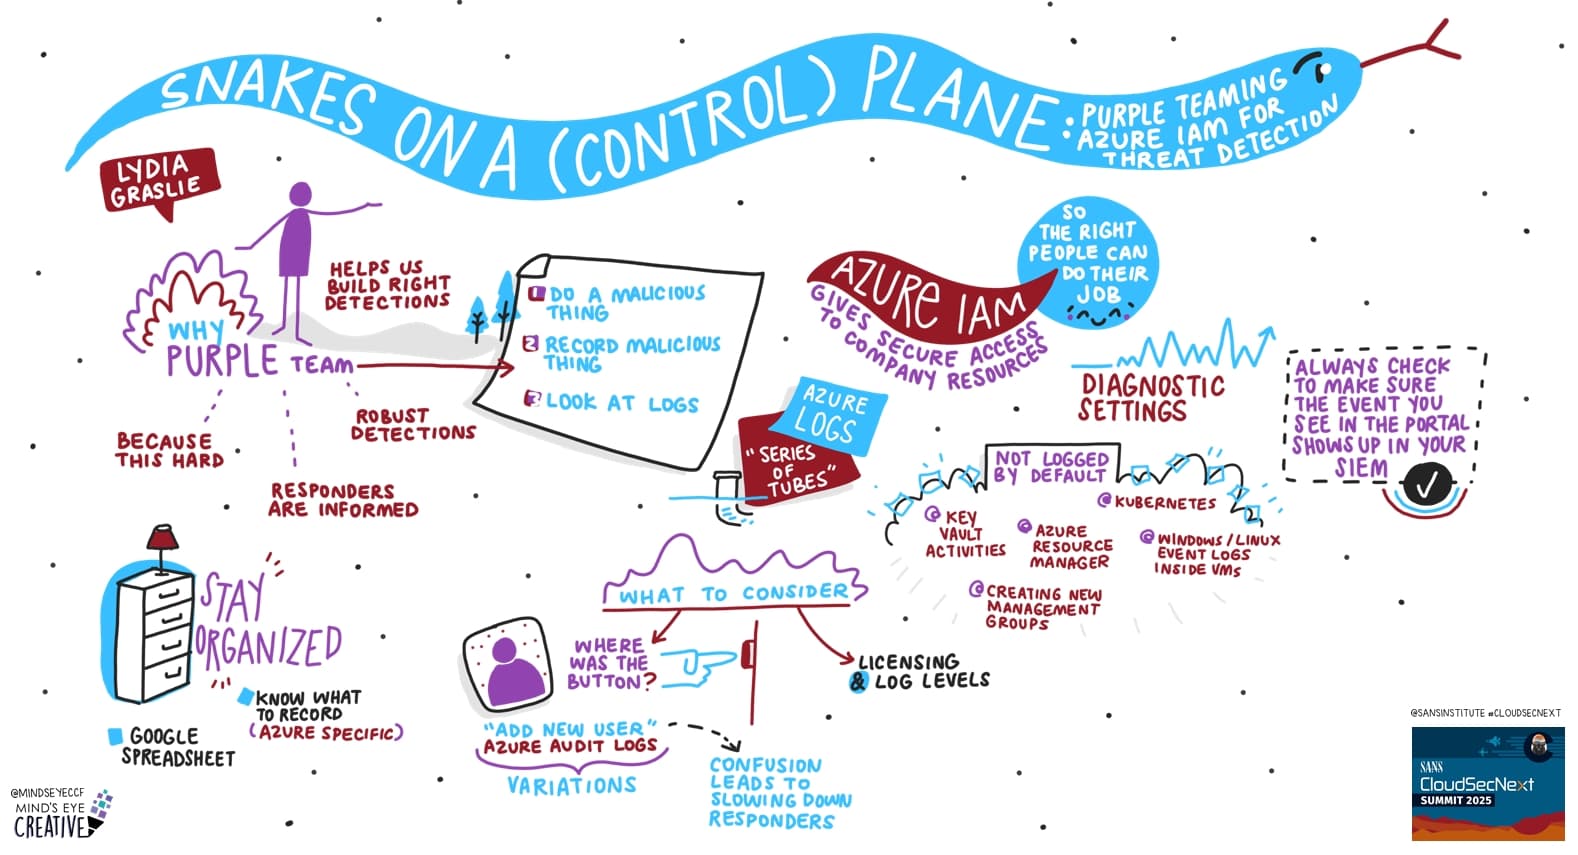 SNAKES ON A (CONTROL) PLANE:
PURPLE TEAMING
AZURE IAM FOR
THREAT DETECTION
LYDIA
GRASLIE
WHY
PURPLE TEAM
HELPS US
BUILD RIGHT
DETECTIONS
BECAUSE
THIS HARD
RESPONDERS
ARE INFORMED
ROBUST
DETECTIONS
1 DO A MALICIOUS
THING
2 RECORD MALICIOUS
THING
3 LOOK AT LOGS
AZURE IAM
GIVES SECURE ACCESS
TO COMPANY RESOURCES
SO
THE RIGHT
PEOPLE CAN
DO THEIR
JOB
AZURE
LOGS
"SERIES
OF
TUBES"
DIAGNOSTIC
SETTINGS
ALWAYS CHECK
TO MAKE SURE
THE EVENT YOU
SEE IN THE PORTAL
SHOWS UP IN YOUR
SIEM
NOT LOGGED
BY DEFAULT
KEY
VAULT
ACTIVITIES
AZURE
RESOURCE
MANAGER
KUBERNETES
WINDOWS/LINUX
EVENT LOGS
INSIDE VMS
CREATING NEW
MANAGEMENT
GROUPS
STAY
ORGANIZED
KNOW WHAT
TO RECORD
(AZURE SPECIFIC)
GOOGLE
SPREADSHEET
WHAT TO CONSIDER
WHERE
WAS THE
BUTTON?
LICENSING
& LOG LEVELS
"ADD NEW USER"
AZURE AUDIT LOGS
VARIATIONS
CONFUSION
LEADS TO
SLOWING DOWN
RESPONDERS
@MINDSEYECCF
MIND'S EYE
CREATIVE
@SANSINSTITUTE #CLOUDSECNEXT
SANS
CloudSecNext
SUMMIT 2025